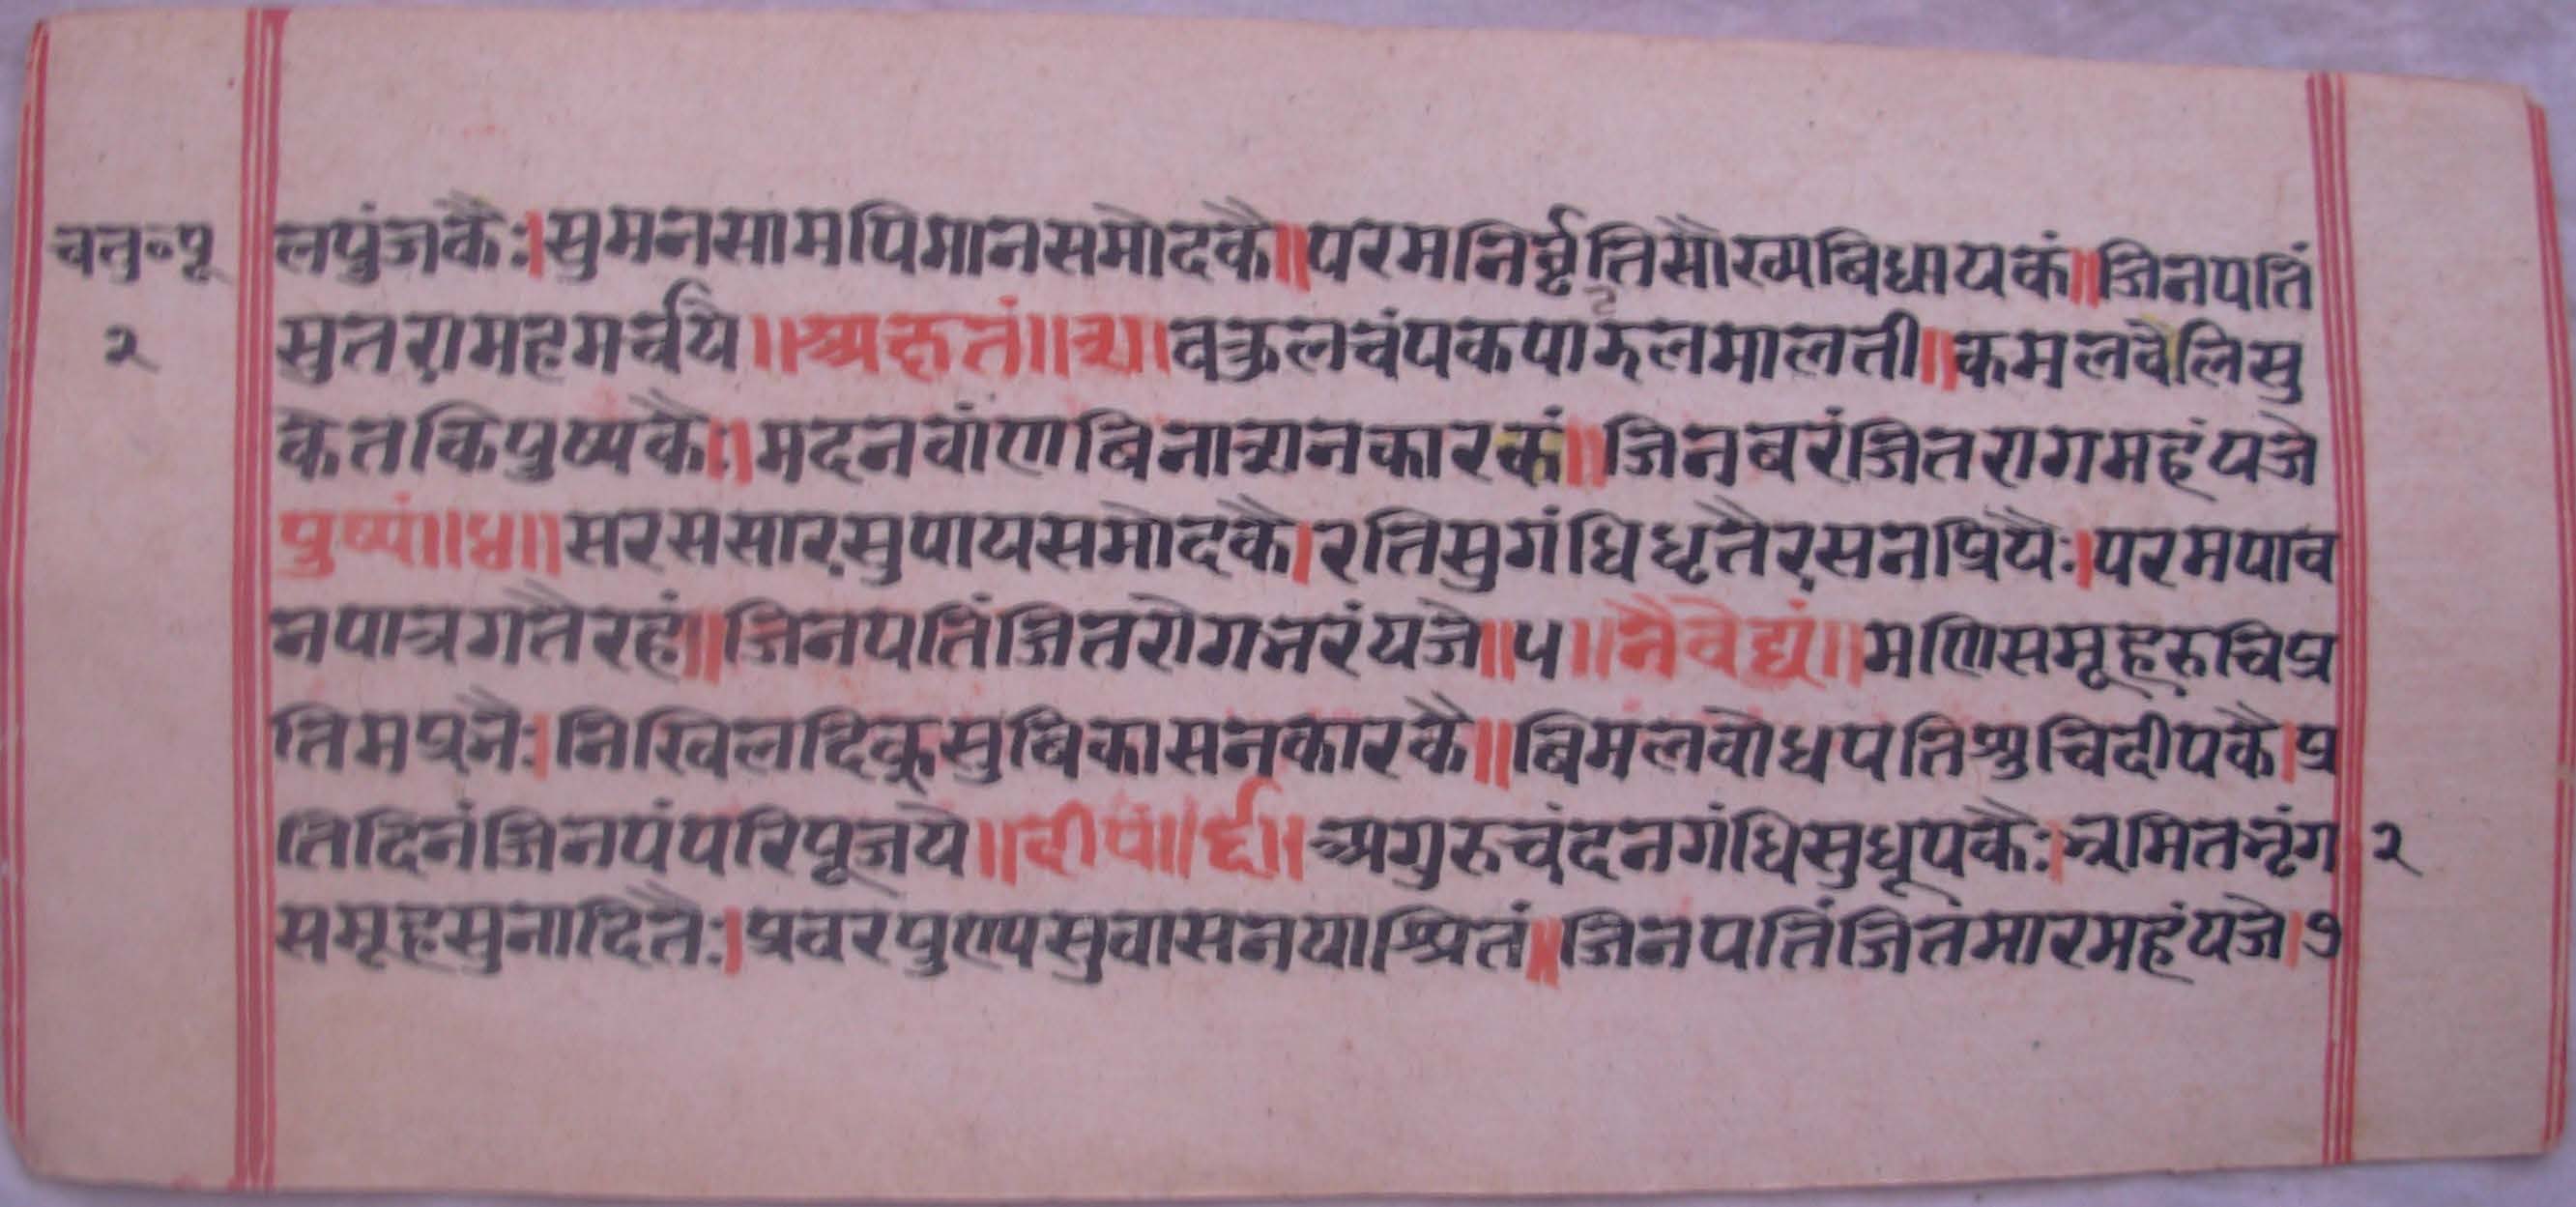 चतु॰पू
२
लपुंजकैः।सुमनसामपिमानसमोदकै॥परमनिर्वृतिसौरम्यबिधायकं॥जिनपतिं
सुतरामहमर्चये॥अक्षतं॥३॥वकुलचंपकपारुलमालती॥कमलवेलिसु
केतकिपुष्पकैः।मदनवांणबिनाशनकारकं॥जिनबरंजितरागमहंयजे
पुष्पं॥४॥सरससारसुपायसमोदकै।रतिसुगंधिघृतैरसनप्रियैः।परमपाव
नपात्रगतैरहं॥जिनपतिंजितरोगभरंयजे॥५॥नैवेद्यं॥मणिसमूहरुचिप्र
तिमप्रनैः।निखिलदिक्सुबिकासनकारकै॥बिमलवोधपतिशुचिदीपकै।प्र
तिदिनंजिनपंपरिपूजये॥दीपं॥६॥अगुरुचंदनगंधिसुधूपकैः।भ्रमितभृंग
२
समूहसुनादितैः।प्रवरपुण्यसुवासनयाश्रितं॥जिनपतिंजितमारमहंयजे।७